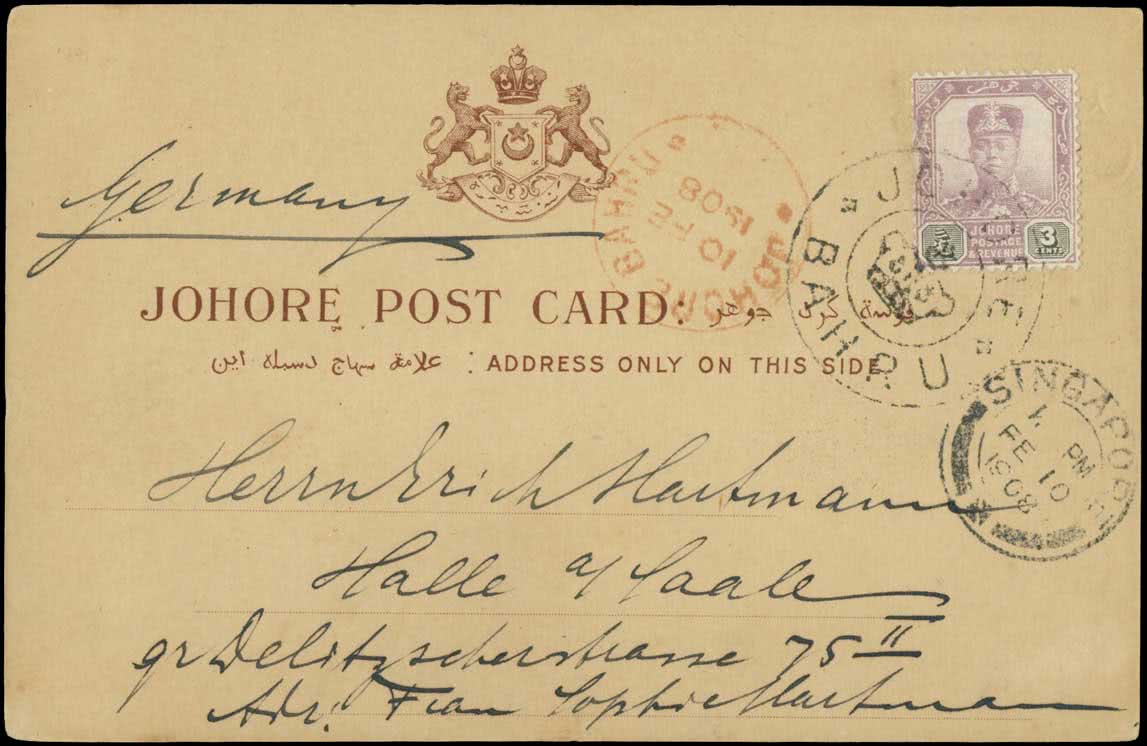 Germany
JOHORE POSTAGE & REVENUE
3 CENTS
JOHORE BAHRU
10 FE 1908
JOHORE BAHRU
JOHORE POST CARD:
علامة سهاج دسبله اين : ADDRESS ONLY ON THIS SIDE
SINGAPORE
PM
FE 10
1908
Herrn Erich Hartmann
Halle a/ Saale
gr Delitzscherstrasse 75 II
Adr. Frau Sophie Hartmann